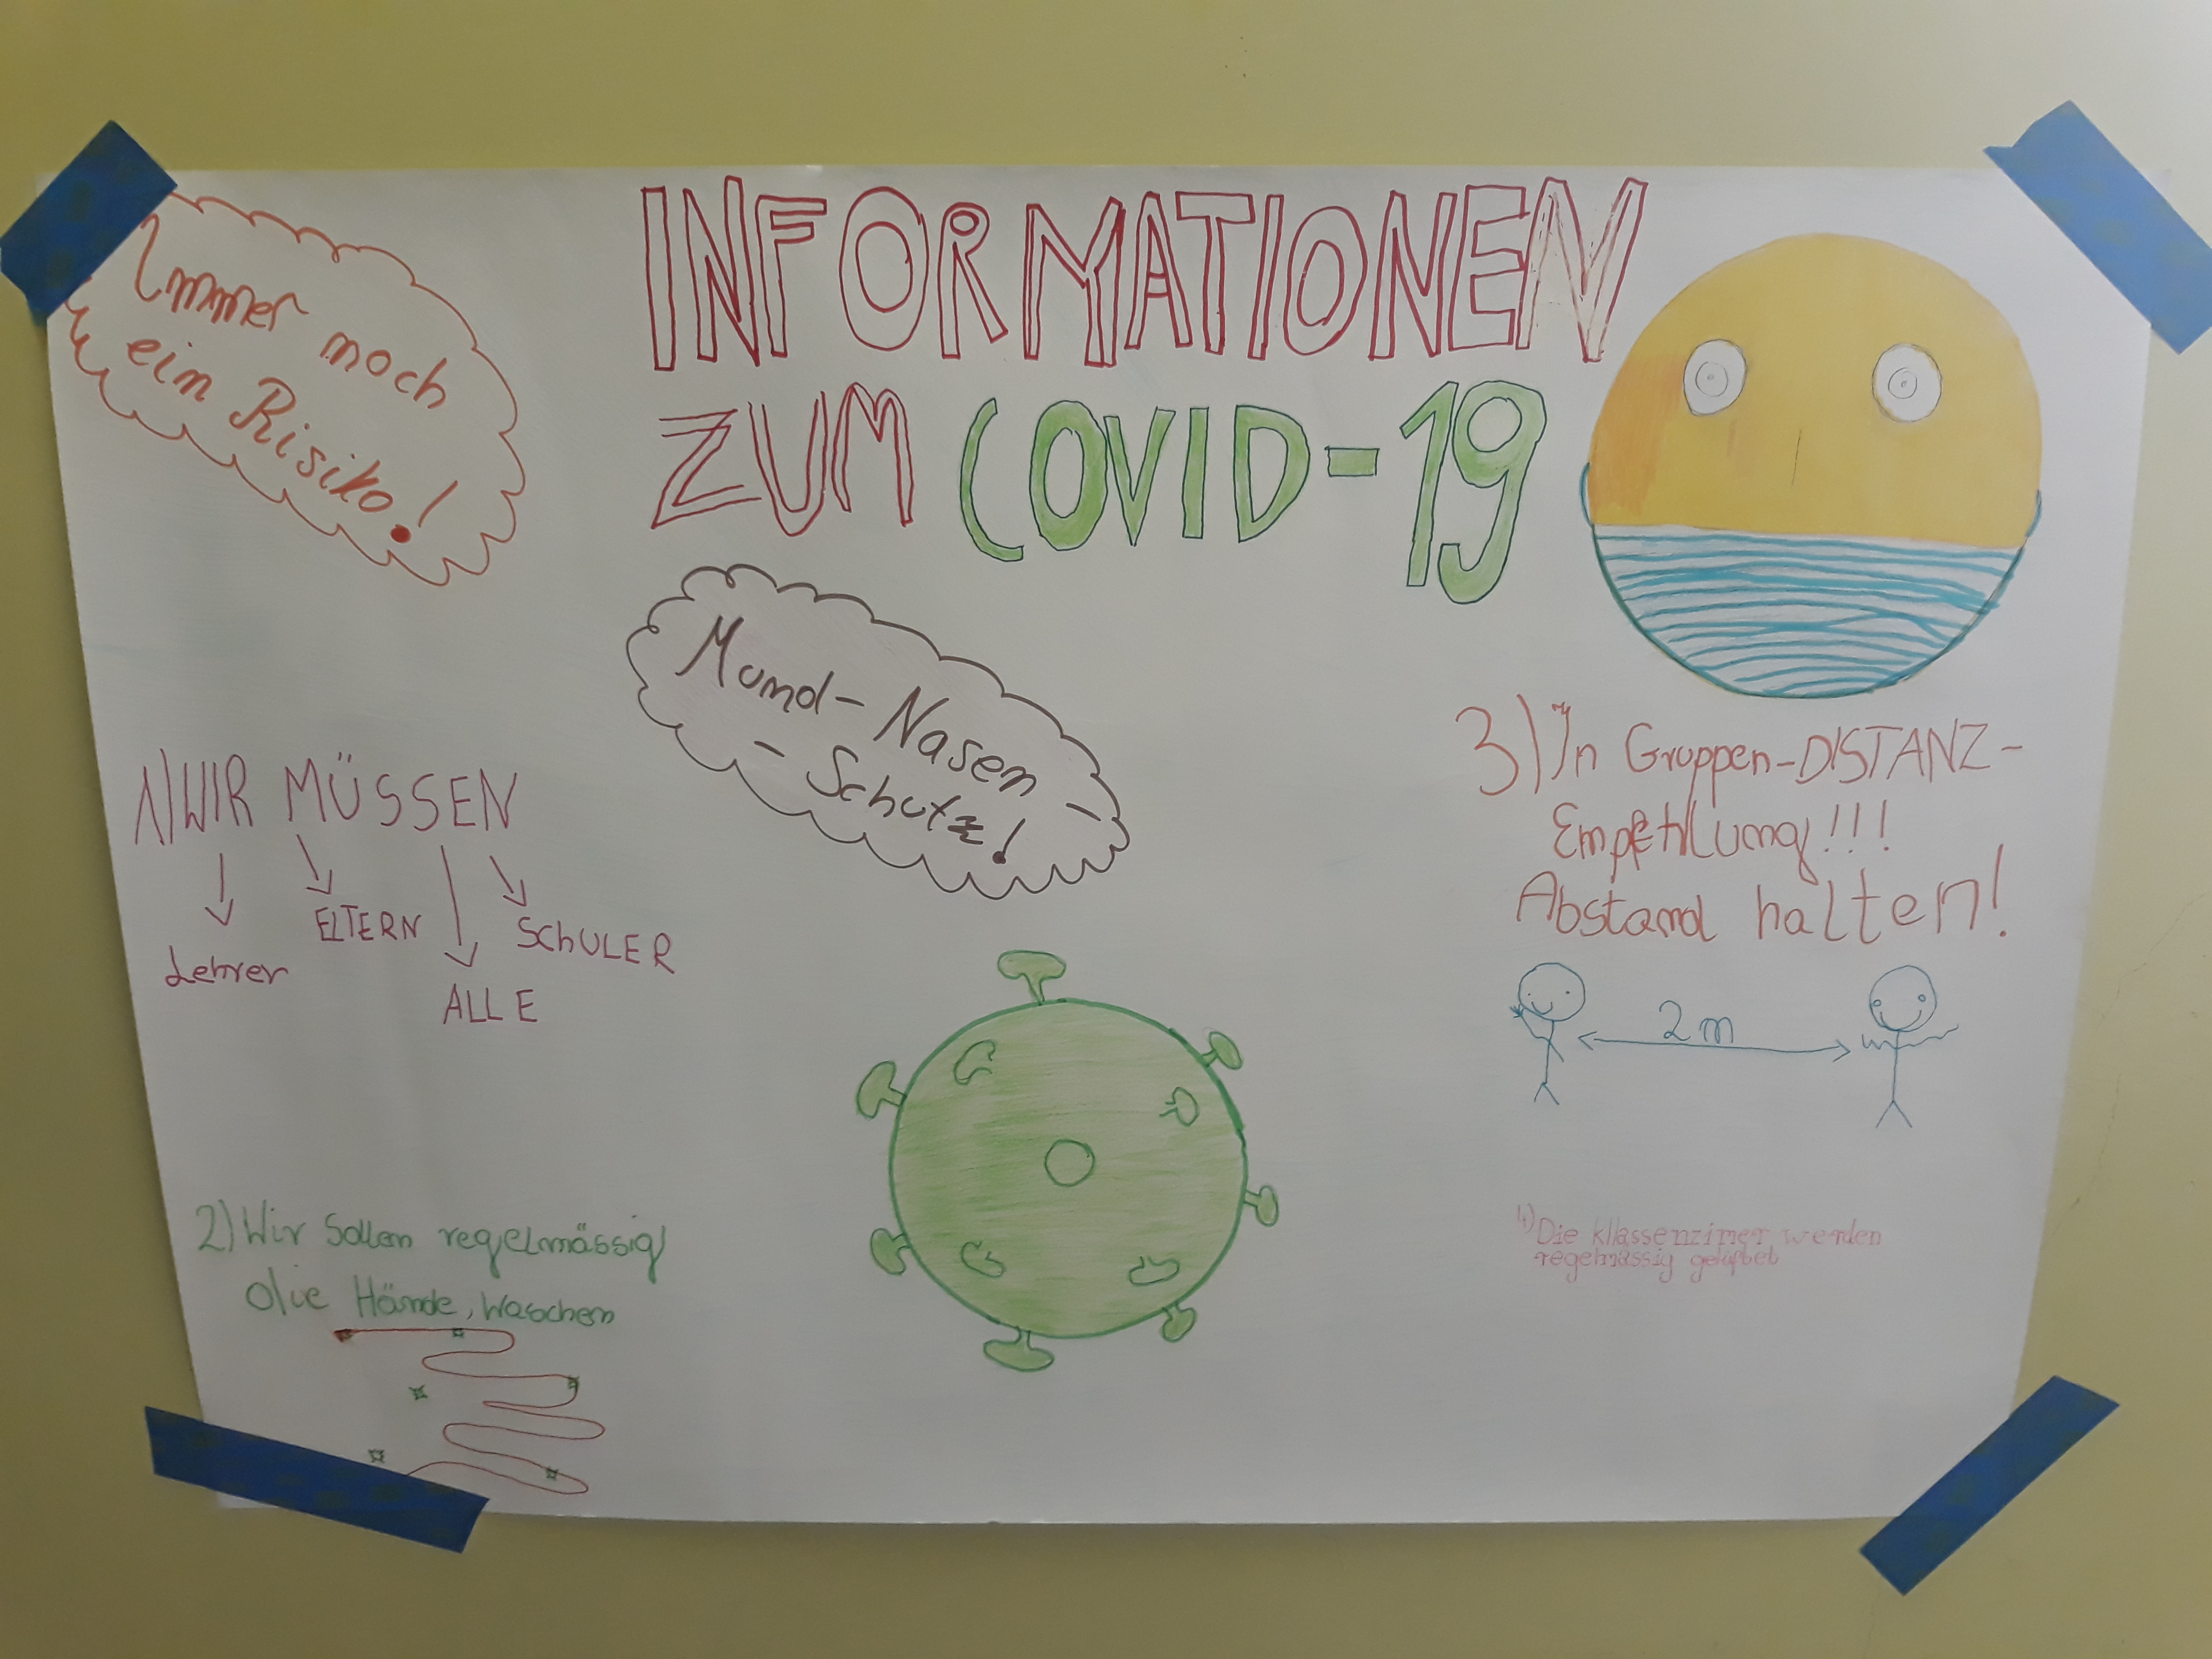 Immer noch
ein Risiko!
INFORMATIONEN
ZUM COVID-19
Mund-Nasen-
-Schutz!
1) WIR MÜSSEN
Lehrer
ELTERN
ALLE
SChULER
2) Wir Sollen regelmässig
die Hände, Waschen
3) In Gruppen-DISTANZ-
Abstand halten!
2m
4) Die kllassenzimer werden
regelmässig gelüftet